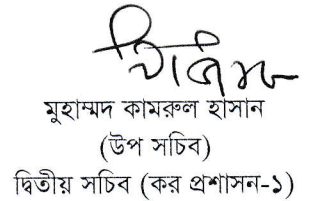 মুহাম্মদ কামরুল হাসান
(উপ সচিব)
দ্বিতীয় সচিব (কর প্রশাসন-১)